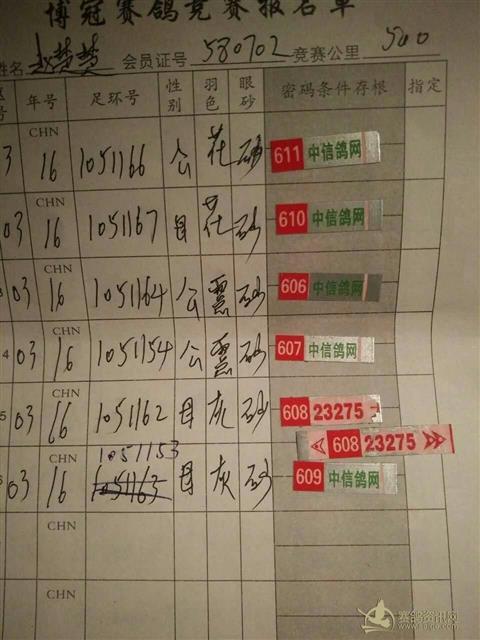 博冠赛鸽竞赛报名单
姓名 赵梦梦 会员证号 580702 竞赛公里 500
号 年号 足环号 性别 羽色 眼砂 密码条件存根 指定
03 CHN 16 1051166 公 花 砂 611 中信鸽网
03 CHN 16 1051167 母 花 砂 610 中信鸽网
03 CHN 16 1051164 公 砂 606 中信鸽网
4 03 CHN 16 1051154 公 砂 607 中信鸽网
5 03 CHN 16 1051162 母 灰 砂 608 23275
608 23275
1051153
03 CHN 16 1051163 母 灰 砂 609 中信鸽网
CHN
CHN
赛鸽资讯网